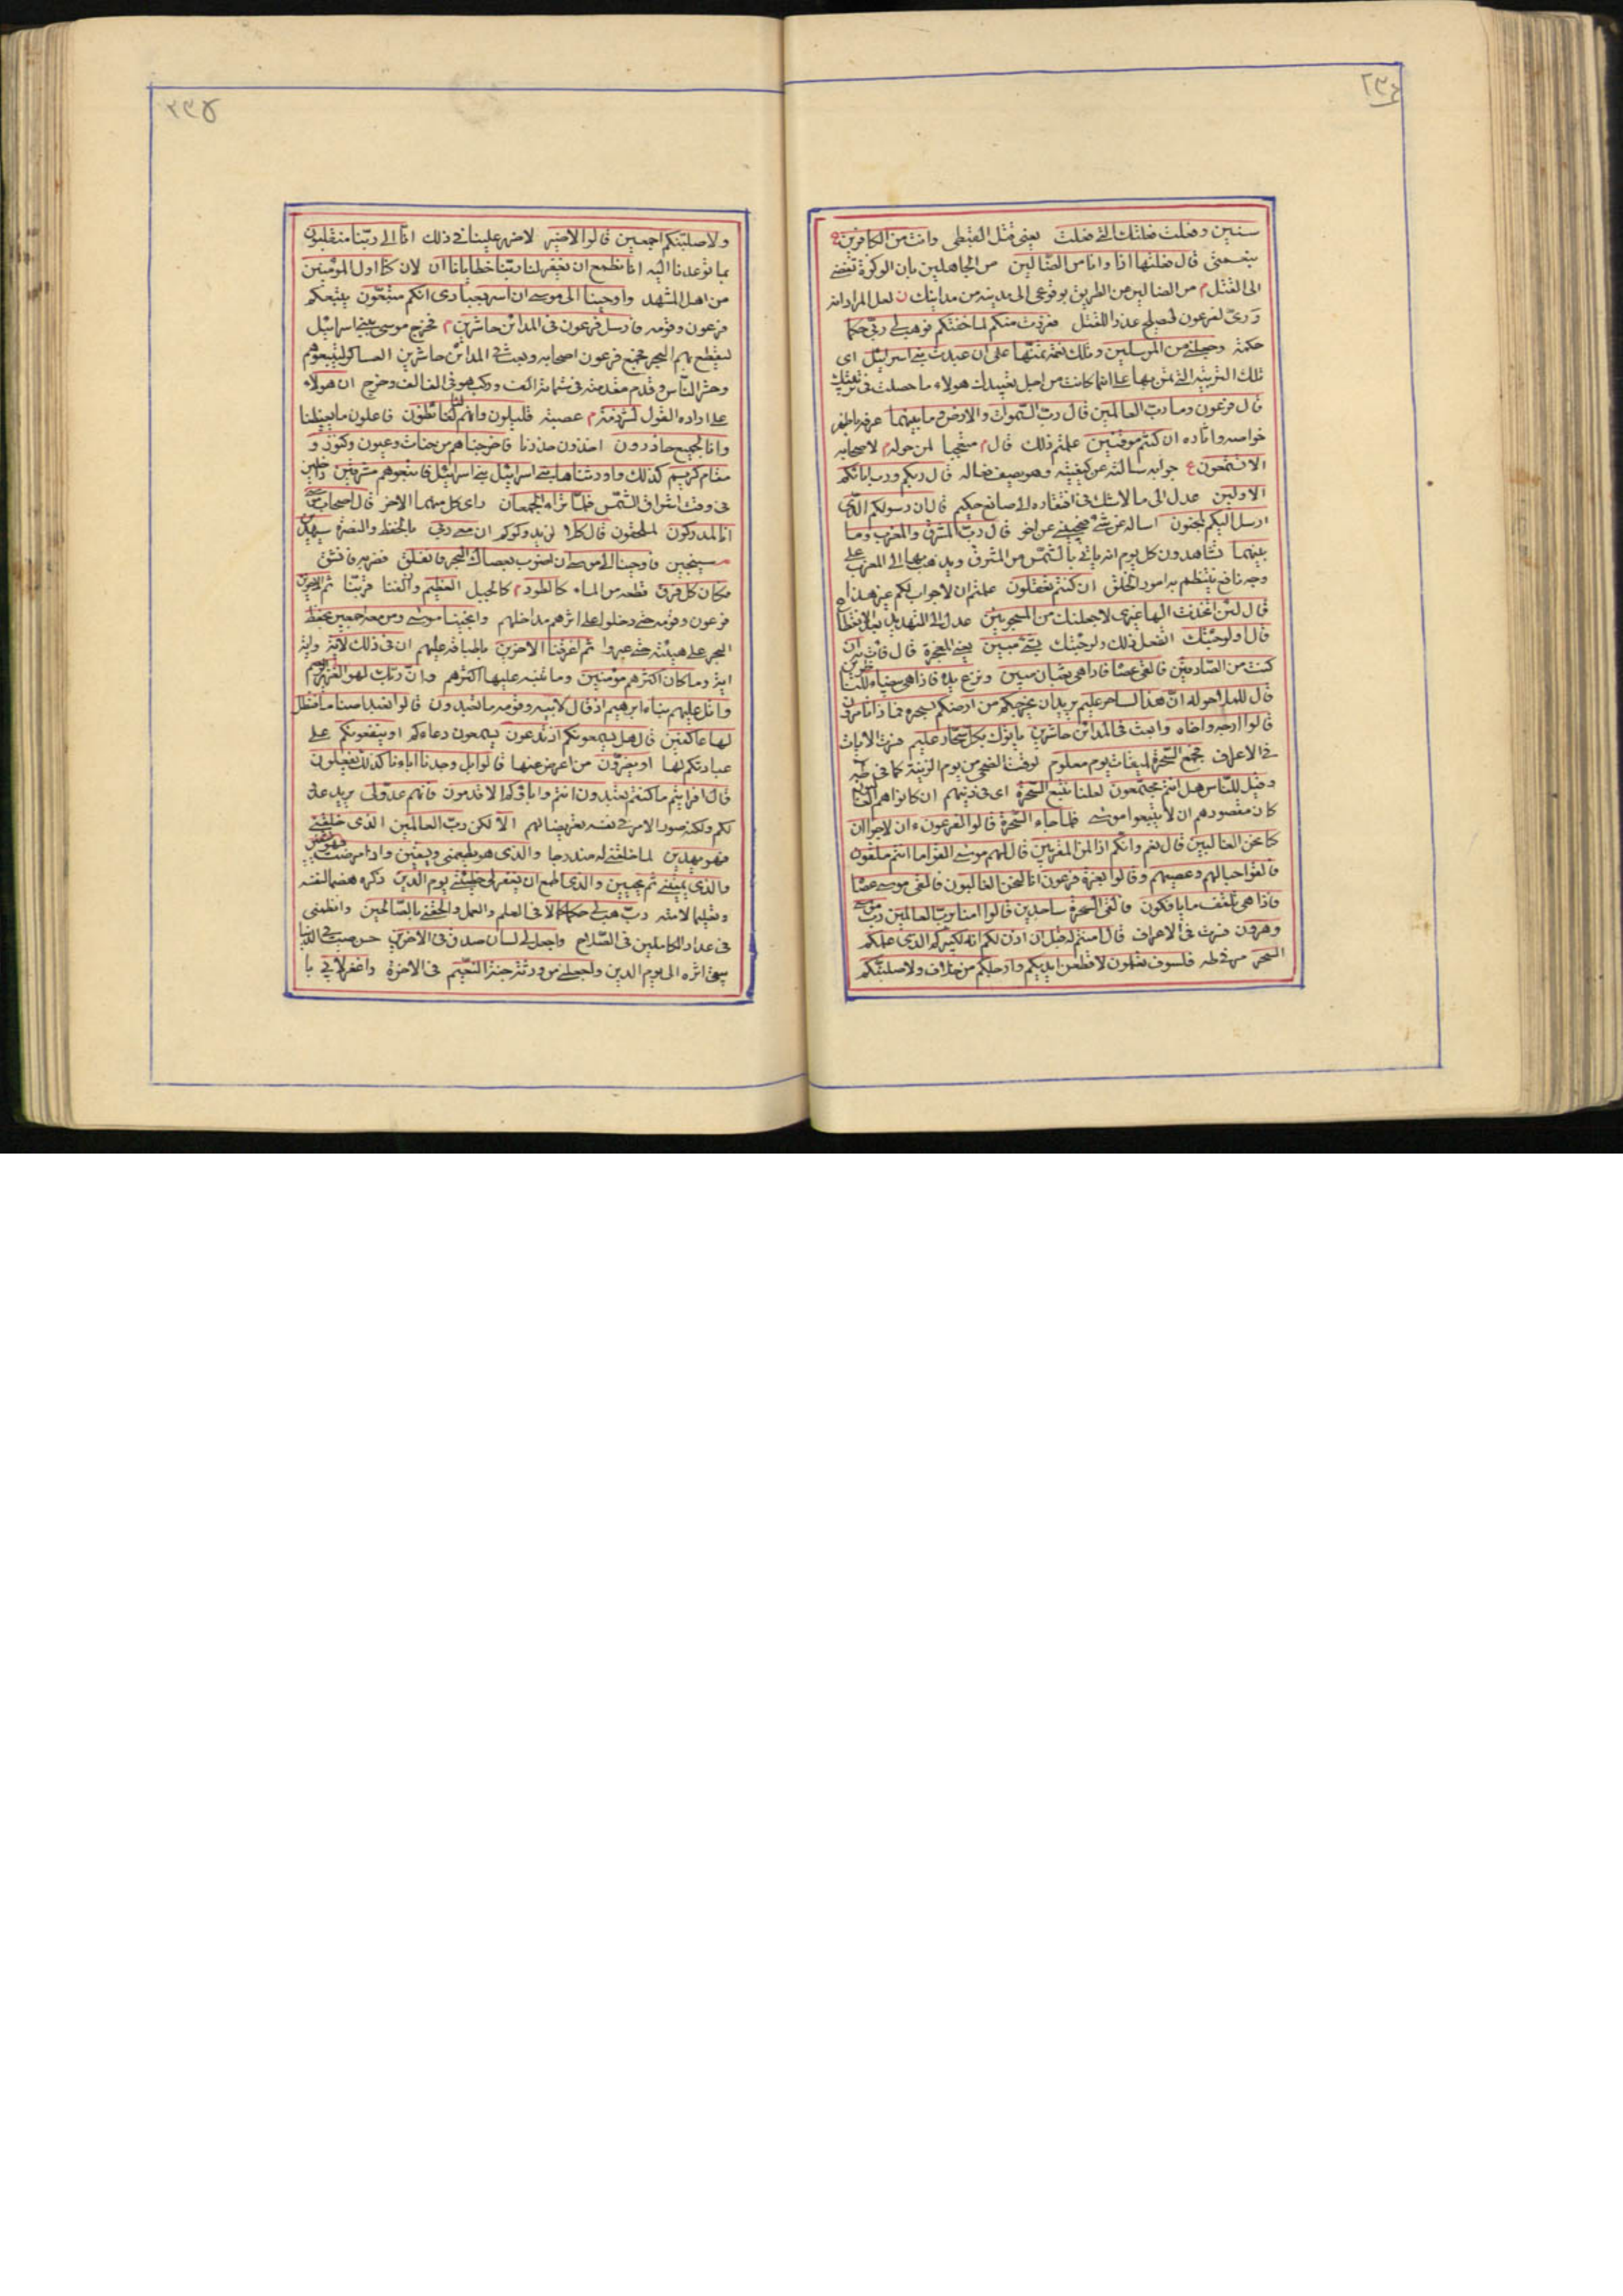 ٢٣٤
سنين وفعلت فعلتك التي فعلت يعني قتل القبطي وانت من الكافرين
بنعمتي قال فعلتها اذا وانا من الضالين من الجاهلين بان الوكزة تفضي
الى القتل م من الضالين عن الطريق بوقوعي الى مدينة من مداينك ن لعل المراد انه
ورى لفرعون لعذر القتل ففررت منكم لما خفتكم فوهب لي ربي حكما
حكمة وجعلني من المرسلين وتلك نعمة تمنها على ان عبدت بني اسرائيل اي
تلك التربية التي تمن بها علي انما كانت من اجل تعبيدك هولاء ما حصلت في تربيتك
قال فرعون وما رب العالمين قال رب السموات والارض وما بينهما عرفه باظهر
خواصه واثاره ان كنتم موقنين علمتم ذلك قال م متعجبا لمن حوله م لاصحابه
الا تستمعون جوابه سالته عن كيفيته وهو يصف فعاله قال ربكم ورب ابائكم
الاولين عدل الى ما لا شك في افتقاره الى صانع حكيم قال ان رسولكم الذي
ارسل اليكم لمجنون اساله عن شيء فيجيبني عن اخر قال رب المشرق والمغرب وما
بينهما تشاهدون كل يوم انه ياتي بالشمس من المشرق ويذهب بها الى المغرب على
وجه نافع ينتظم به امور الخلق ان كنتم تعقلون علمتم ان لا جواب لكم غير هذا
قال لئن اتخذت الها غيري لاجعلنك من المسجونين عدل الى التهديد بعد الانقطاع
قال اولو جئتك اتفعل ذلك ولو جئتك بشيء مبين يعني المعجزة قال فات به ان
كنت من الصادقين فالقى عصاه فاذا هي ثعبان مبين ونزع يده فاذا هي بيضاء للناظرين
قال للملا حوله ان هذا لساحر عليم يريد ان يخرجكم من ارضكم بسحره فماذا تامرون
قالوا ارجه واخاه وابعث في المدائن حاشرين ياتوك بكل سحار عليم فسرت الايات
في الاعراف فجمع السحرة لميقات يوم معلوم لوقت الضحى من يوم الزينة كما في طه
وقيل للناس هل انتم مجتمعون لعلنا نتبع السحرة اي في دينهم ان كانوا هم الغالبين
كان مقصودهم ان لا يتبعوا موسى فلما جاء السحرة قالوا لفرعون ائن لنا لاجرا ان
كنا نحن الغالبين قال نعم وانكم اذا لمن المقربين قال لهم موسى القوا ما انتم ملقون
فالقوا حبالهم وعصيهم وقالوا بعزة فرعون انا لنحن الغالبون فالقى موسى عصاه
فاذا هي تلقف ما يافكون فالقي السحرة ساجدين قالوا امنا برب العالمين رب موسى
وهرون فسرت في الاعراف قال امنتم له قبل ان اذن لكم انه لكبيركم الذي علمكم
السحر مر في طه فلسوف تعلمون لاقطعن ايديكم وارجلكم من خلاف ولاصلبنكم
٢٣٥
ولاصلبنكم اجمعين قالوا لا ضير لا ضرر علينا في ذلك انا الى ربنا منقلبون
بما توعدنا اليه انا نطمع ان يغفر لنا ربنا خطايانا ان لان كنا اول المؤمنين
من اهل المشهد واوحينا الى موسى ان اسر بعبادي انكم متبعون يتبعكم
فرعون وقومه فارسل فرعون في المدائن حاشرين م فخرج موسى ببني اسرائيل
ليقطع بهم البحر فجمع فرعون اصحابه وبعث في المدائن حاشرين العساكر ليتبعوهم
وحشر الناس وقدم مقدمته في ستمائة الف وركب هو في الف الف وخرج ان هولاء
على ارادة القول لشرذمة م عصبة قليلون وانهم لنا لغائظون فاعلون ما يغيظنا
وانا لجميع حاذرون فاخرجناهم من جنات وعيون وكنوز و
مقام كريم كذلك واورثناها بني اسرائيل بني اسرائيل فاتبعوهم مشرقين داخلين
في وقت اشراق الشمس فلما تراء الجمعان راى كل منهما الاخر قال اصحاب موسى
انا لمدركون لملحقون قال كلا لن يدركوكم ان معي ربي بالحفظ والنصرة سيهدين
سينجين فاوحينا الى موسى ان اضرب بعصاك البحر فانفلق فضربه فانشق
فكان كل فرق قطعة من الماء كالطود م كالجبل العظيم وازلفنا قربنا ثم الاخرين
فرعون وقومه حتى دخلوا على اثرهم مداخلهم وانجينا موسى ومن معه اجمعين بحفظ
البحر على هيئته حتى عبروا ثم اغرقنا الاخرين باطباقه عليهم ان في ذلك لاية واية
اية وما كان اكثرهم مؤمنين وما تنبه عليها اكثرهم وان ربك لهو العزيز الرحيم
واتل عليهم نبا ابرهيم اذ قال لابيه وقومه ما تعبدون قالوا نعبد اصناما فنظل
لها عاكفين قال هل يسمعونكم اذ تدعون يسمعون دعاءكم او ينفعونكم على
عبادتكم لها او يضرون من اعرض عنها قالوا بل وجدنا اباءنا كذلك يفعلون
قال افرايتم ما كنتم تعبدون انتم واباؤكم الاقدمون فانهم عدو لي يريد عدو
لكم ولكنه صور الامر في نفسه تعريضا لهم الا لكن رب العالمين الذي خلقني
فهو يهدين لما خلقني له والذي هو يطعمني ويسقين واذا مرضت فهو يشفين
والذي يميتني ثم يحيين والذي اطمع ان يغفر لي خطيئتي يوم الدين ذكره هضما لنفسه
وتعليما لامته رب هب لي حكما كمالا في العلم والعمل والحقني بالصالحين وانظمني
في عداد الكاملين في الصلاح واجعل لي لسان صدق في الاخرين حسن صيت في الدنيا
يبقى اثره الى يوم الدين واجعلني من ورثة جنة النعيم في الاخرة واغفر لابي با